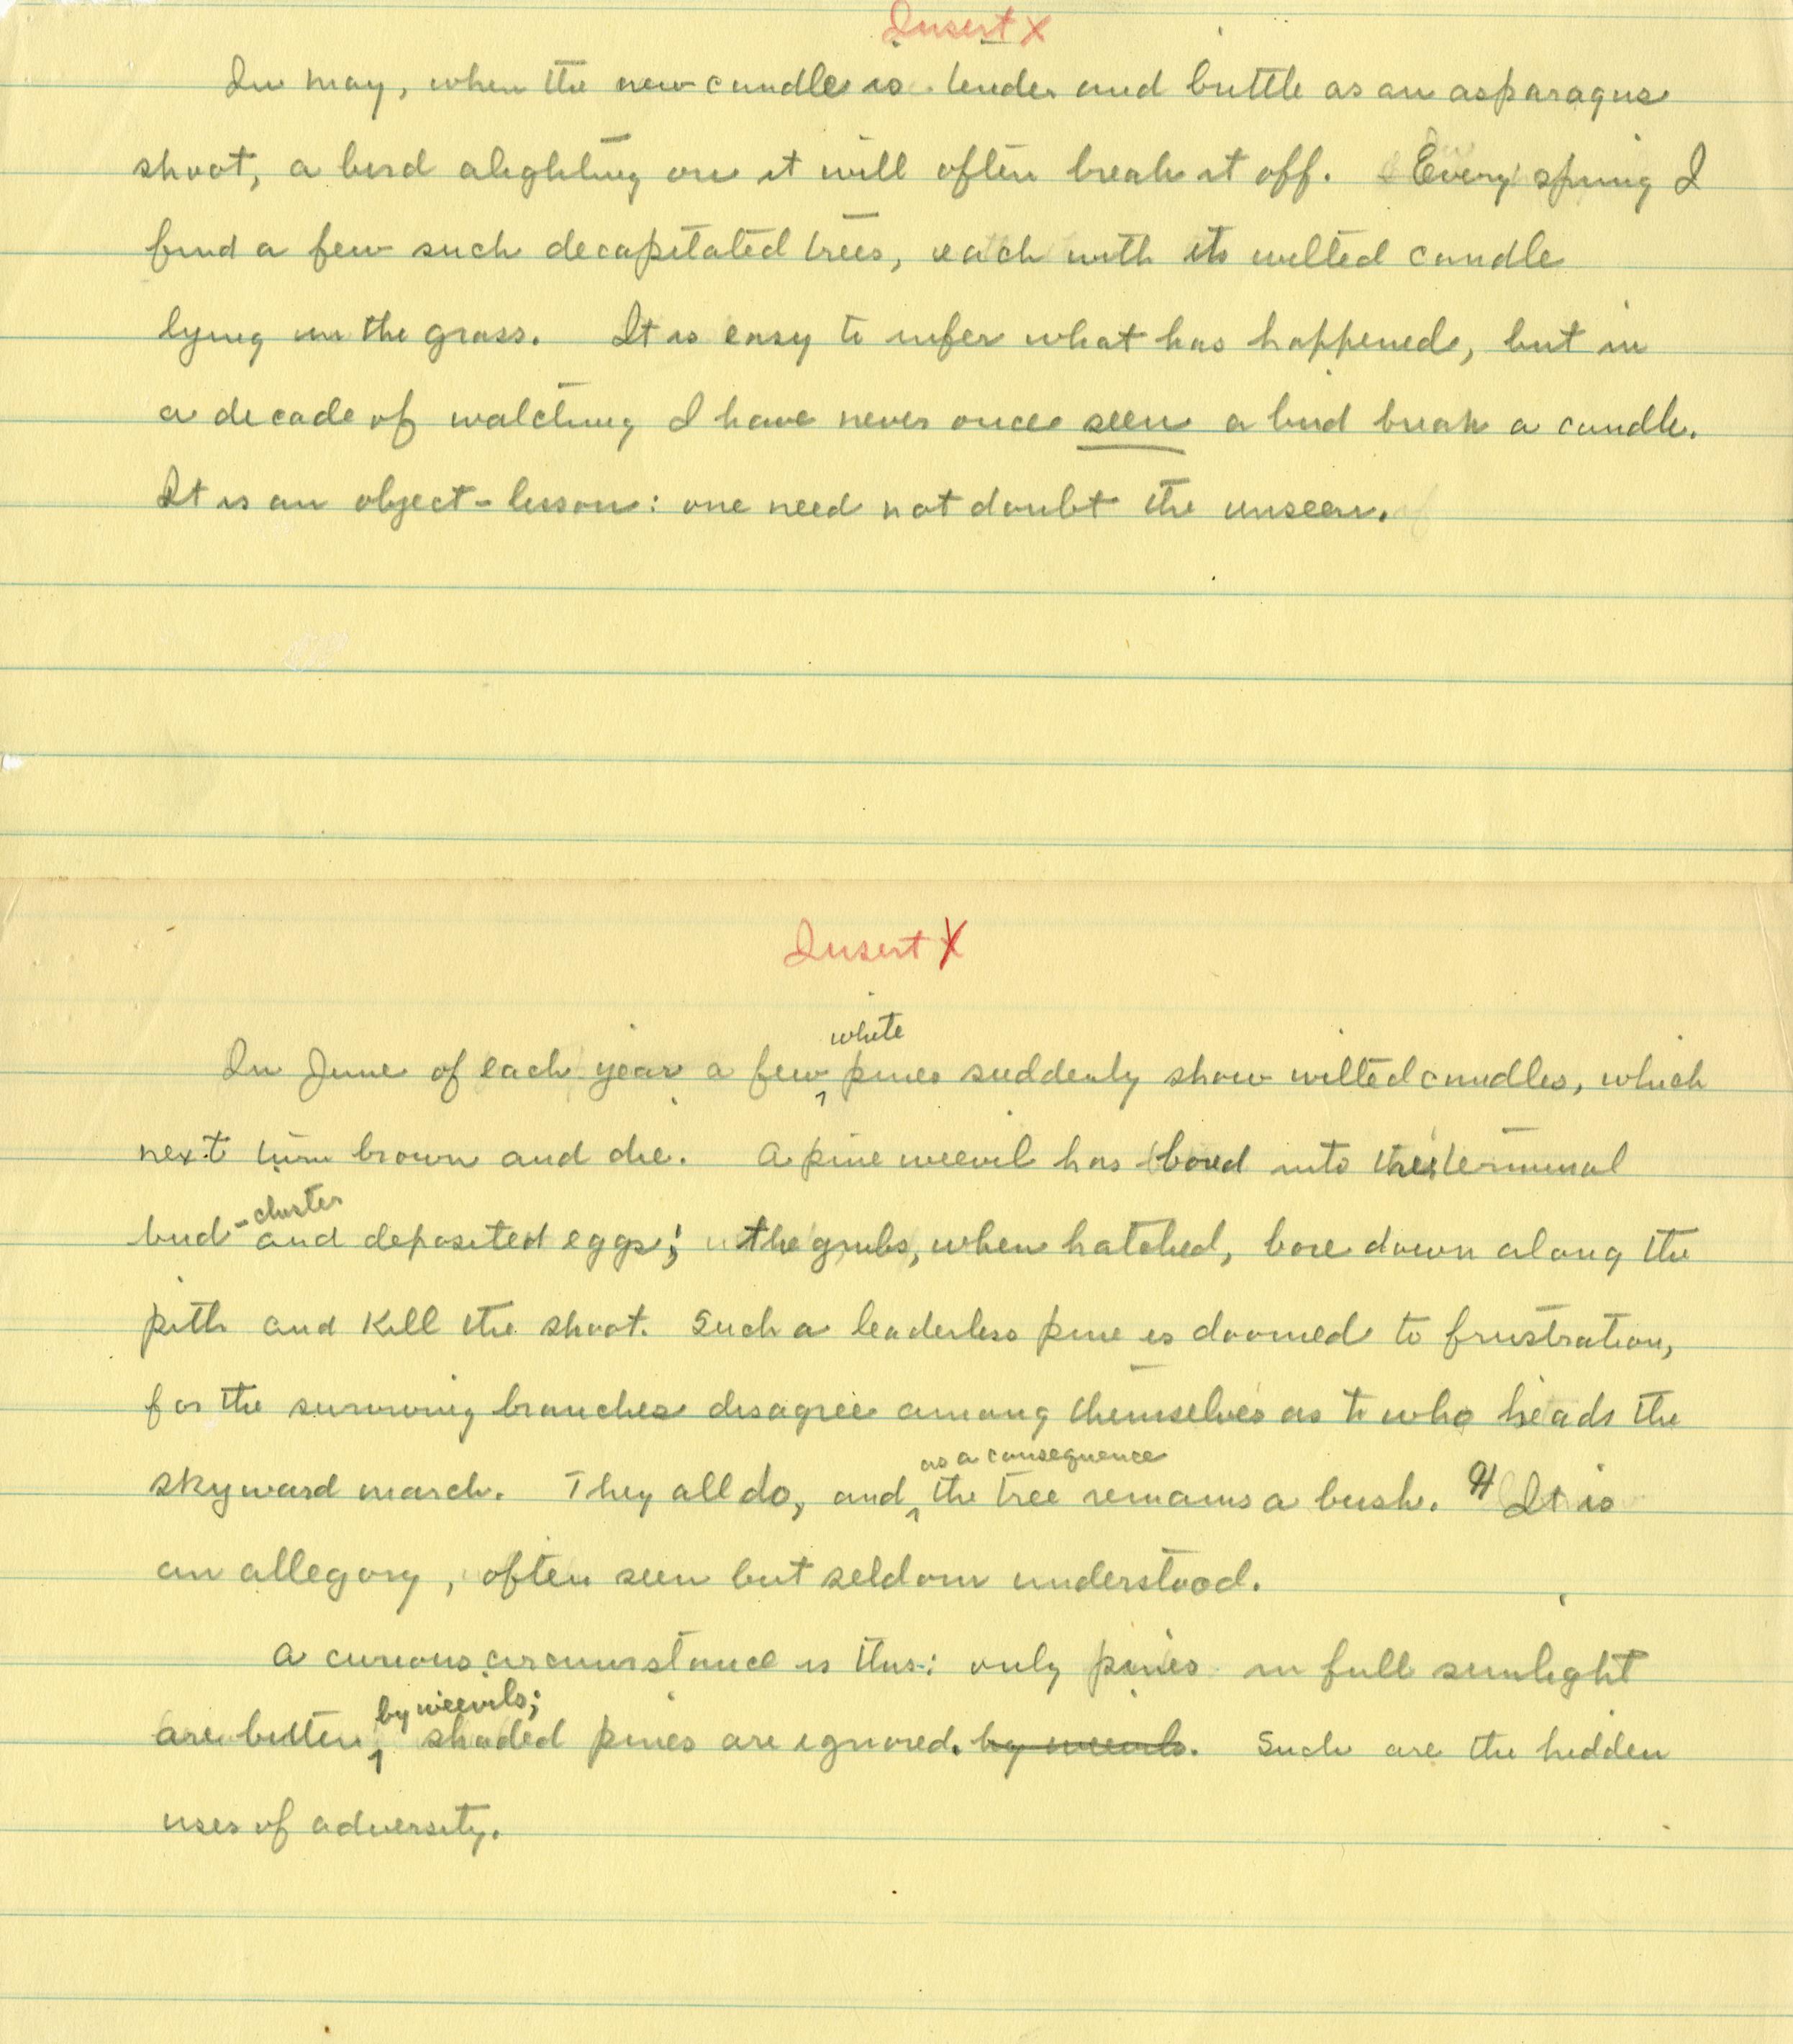 Insert X
In May, when the new candle is tender and brittle as an asparagus
shoot, a bird alighting on it will often break it off. Every spring I
find a few such decapitated trees, each with its wilted candle
lying in the grass. It is easy to infer what has happened, but in
a decade of watching I have never once seen a bird break a candle.
It is an object-lesson: one need not doubt the unseen.
Insert X
white
In June of each year a few pines suddenly show wilted candles, which
next turn brown and die. A pine weevil has bored into the terminal
-cluster
bud and deposited eggs; the grubs, when hatched, bore down along the
pith and kill the shoot. Such a leaderless pine is doomed to frustration,
for the surviving branches disagree among themselves as to who heads the
as a consequence
skyward march. They all do, and the tree remains a bush. ¶ It is
an allegory, often seen but seldom understood.
A curious circumstance is this: only pines in full sunlight
by weevils;
are bitten shaded pines are ignored. by weevils. Such are the hidden
uses of adversity.